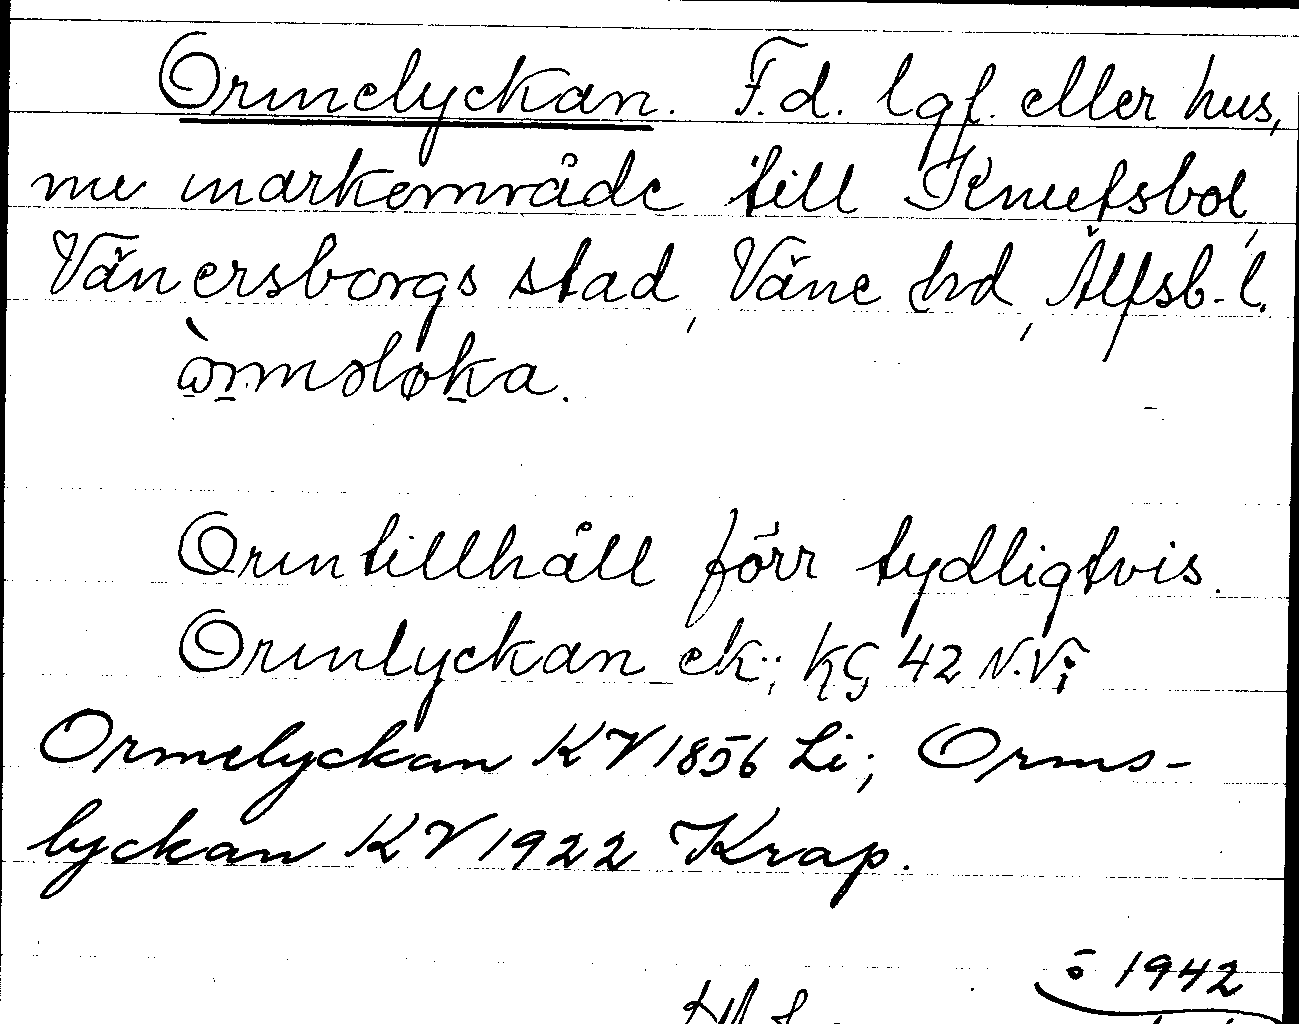 Ormelyckan. F.d. lgf. eller hus,
nu markområde till Knutsbol,
Vänersborgs stad, Väne hd, Älfsb. l.
Ormtillhåll förr tydligtvis.
Ormlyckan ek.; KG 42 N.V;
Ormelyckan KV 1856 Li; Orms-
lyckan KV 1922 Krap.
ö 1942